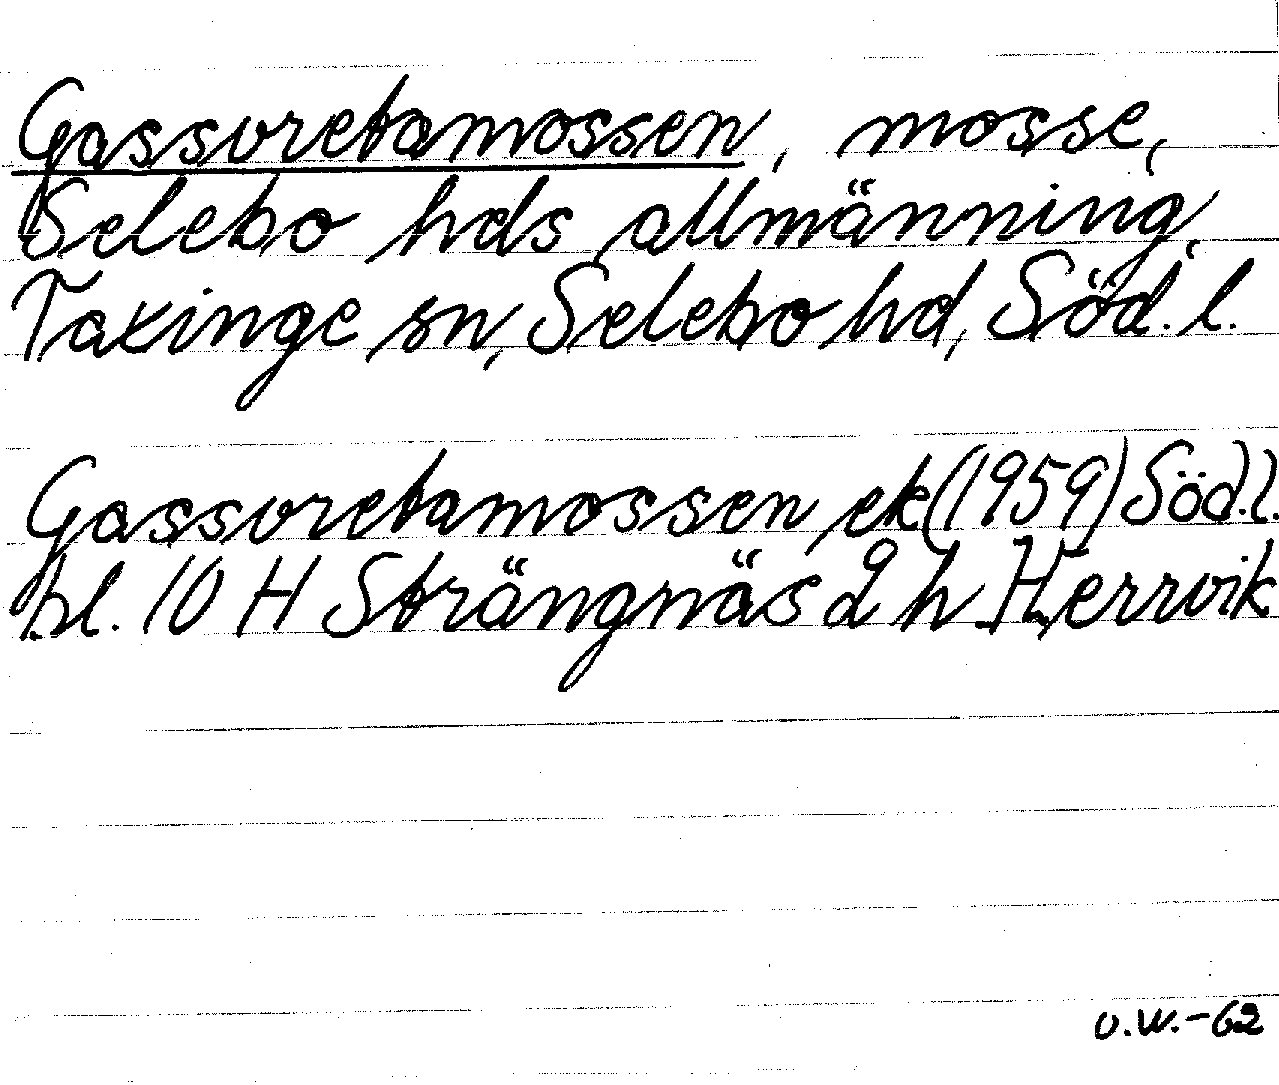 Gassvretamossen, mosse,
Selebo hds allmänning,
Taxinge sn, Selebo hd, Söd.l.
Gassvretamossen, ek (1959) Söd.l.
bl. 10 H Strängnäs 2 h Herrvik
O.W.-62